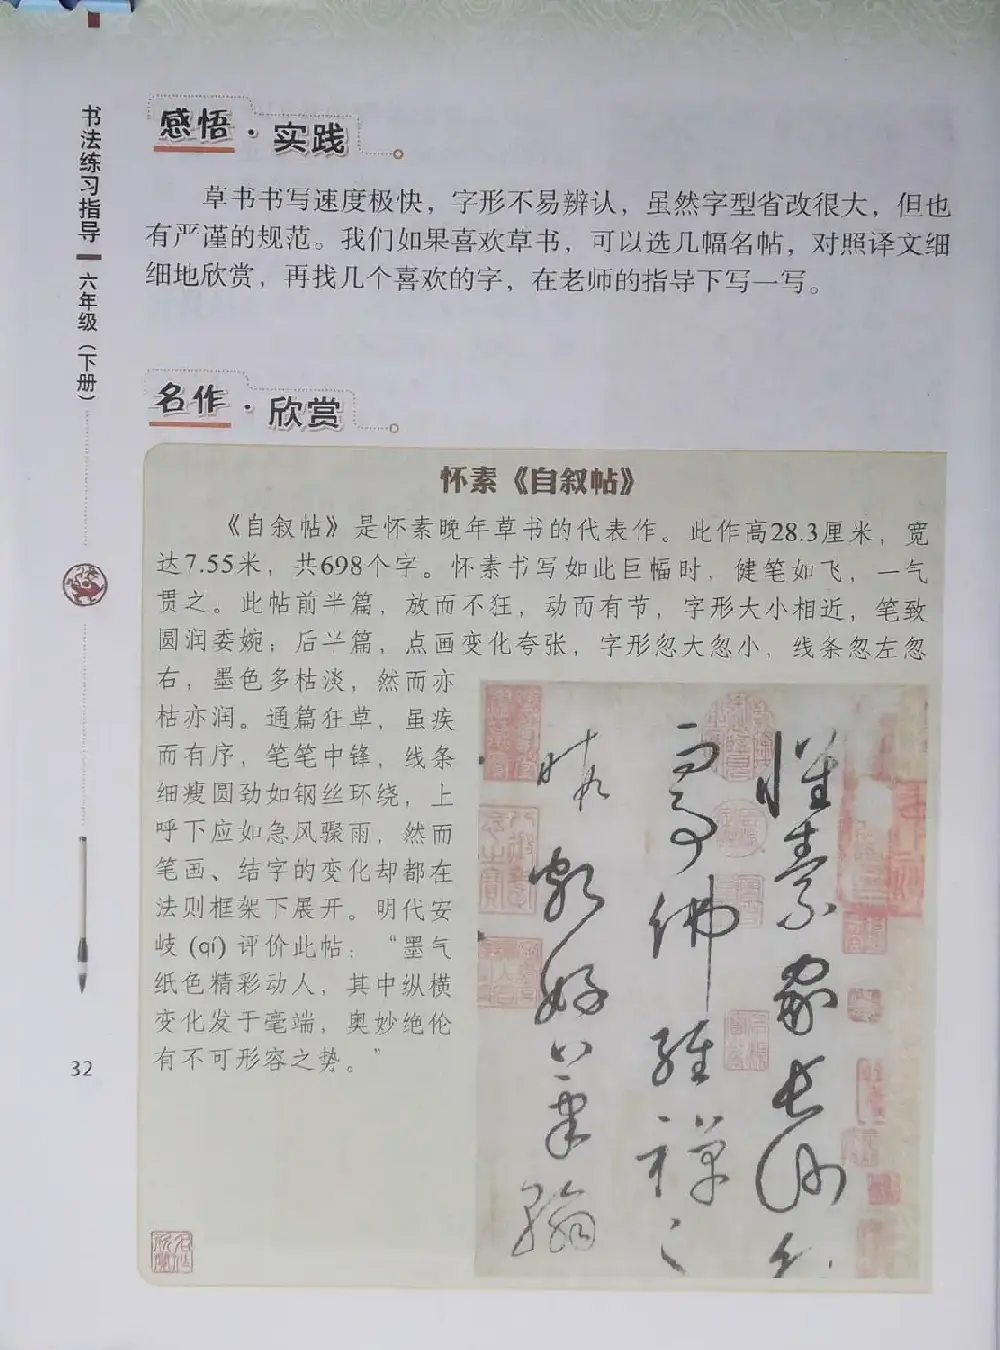 书法练习指导
六年级（下册）
32
感悟·实践
草书书写速度极快，字形不易辨认，虽然字型省改很大，但也
有严谨的规范。我们如果喜欢草书，可以选几幅名帖，对照译文细
细地欣赏，再找几个喜欢的字，在老师的指导下写一写。
名作·欣赏
怀素《自叙帖》
《自叙帖》是怀素晚年草书的代表作。此作高28.3厘米，宽
达7.55米，共698个字。怀素书写如此巨幅时，健笔如飞，一气
贯之。此帖前半篇，放而不狂，动而有节，字形大小相近，笔致
圆润委婉；后半篇，点画变化夸张，字形忽大忽小，线条忽左忽
右，墨色多枯淡，然而亦
枯亦润。通篇狂草，虽疾
而有序，笔笔中锋，线条
细瘦圆劲如钢丝环绕，上
呼下应如急风骤雨，然而
笔画、结字的变化却都在
法则框架下展开。明代安
岐 (qí) 评价此帖：“墨气
纸色精彩动人，其中纵横
变化发于毫端，奥妙绝伦
有不可形容之势。”
怀素家长沙幼
而事佛经禅之
暇颇好笔翰